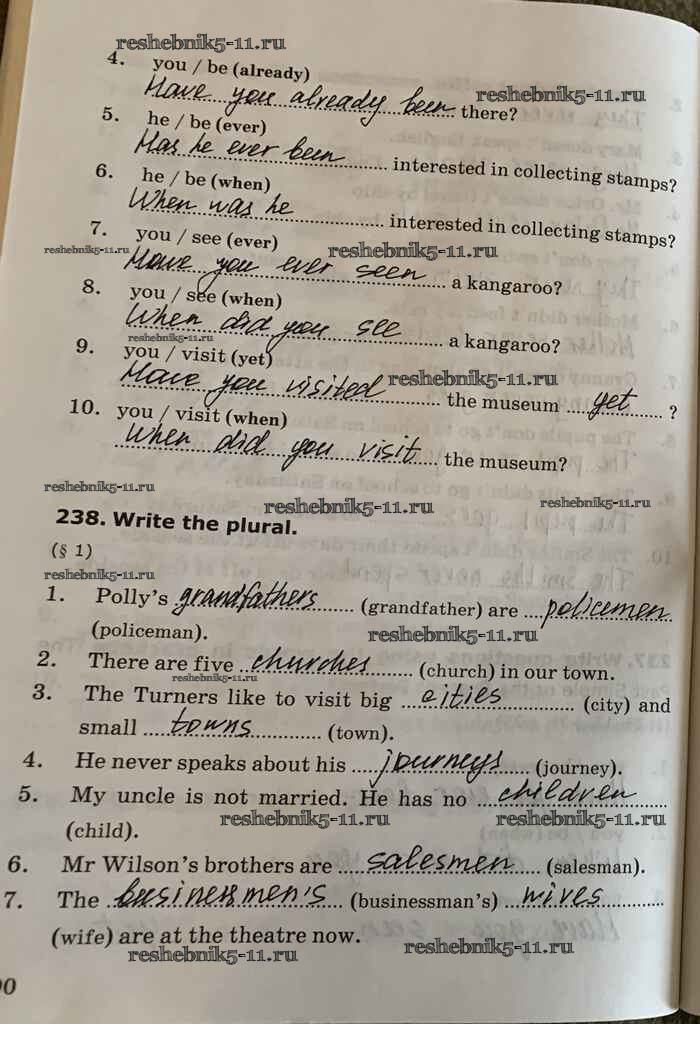 reshebnik5-11.ru
4. you / be (already)
Have you already been there? reshebnik5-11.ru
5. he / be (ever)
Has he ever been interested in collecting stamps?
6. he / be (when)
When was he interested in collecting stamps?
7. you / see (ever)
reshebnik5-11.ru reshebnik5-11.ru
Have you ever seen a kangaroo?
8. you / see (when)
When did you see a kangaroo?
reshebnik5-11.ru
9. you / visit (yet)
Have you visited the museum yet ?
reshebnik5-11.ru
10. you / visit (when)
When did you visit the museum?
reshebnik5-11.ru
reshebnik5-11.ru reshebnik5-11.ru
238. Write the plural.
(§ 1)
reshebnik5-11.ru
1. Polly's grandfathers (grandfather) are policemen
(policeman). reshebnik5-11.ru
2. There are five churches (church) in our town.
reshebnik5-11.ru
3. The Turners like to visit big cities (city) and
small towns (town).
4. He never speaks about his journeys (journey).
5. My uncle is not married. He has no children
(child). reshebnik5-11.ru reshebnik5-11.ru
6. Mr Wilson's brothers are salesmen (salesman).
7. The businessmen's (businessman's) wives
(wife) are at the theatre now.
reshebnik5-11.ru reshebnik5-11.ru